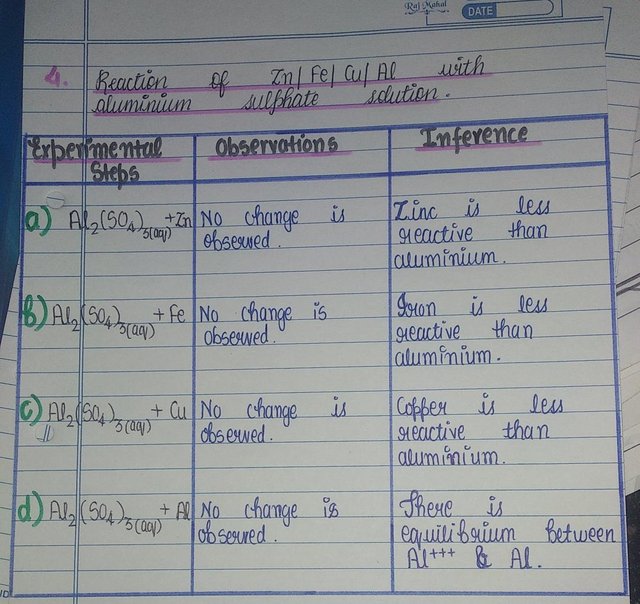 Raj Mahal
DATE
4. Reaction of Zn/ Fe/ Cu/ Al with
aluminium sulphate solution.
Experimental Steps
Observations
Inference
a) Al₂(SO₄)₃(aq) + Zn
No change is
observed.
Zinc is less
reactive than
aluminium.
b) Al₂(SO₄)₃(aq) + Fe
No change is
observed.
Iron is less
reactive than
aluminium.
c) Al₂(SO₄)₃(aq) + Cu
No change is
observed.
Copper is less
reactive than
aluminium.
d) Al₂(SO₄)₃(aq) + Al
No change is
observed.
There is
equilibrium between
Al⁺⁺⁺ & Al.